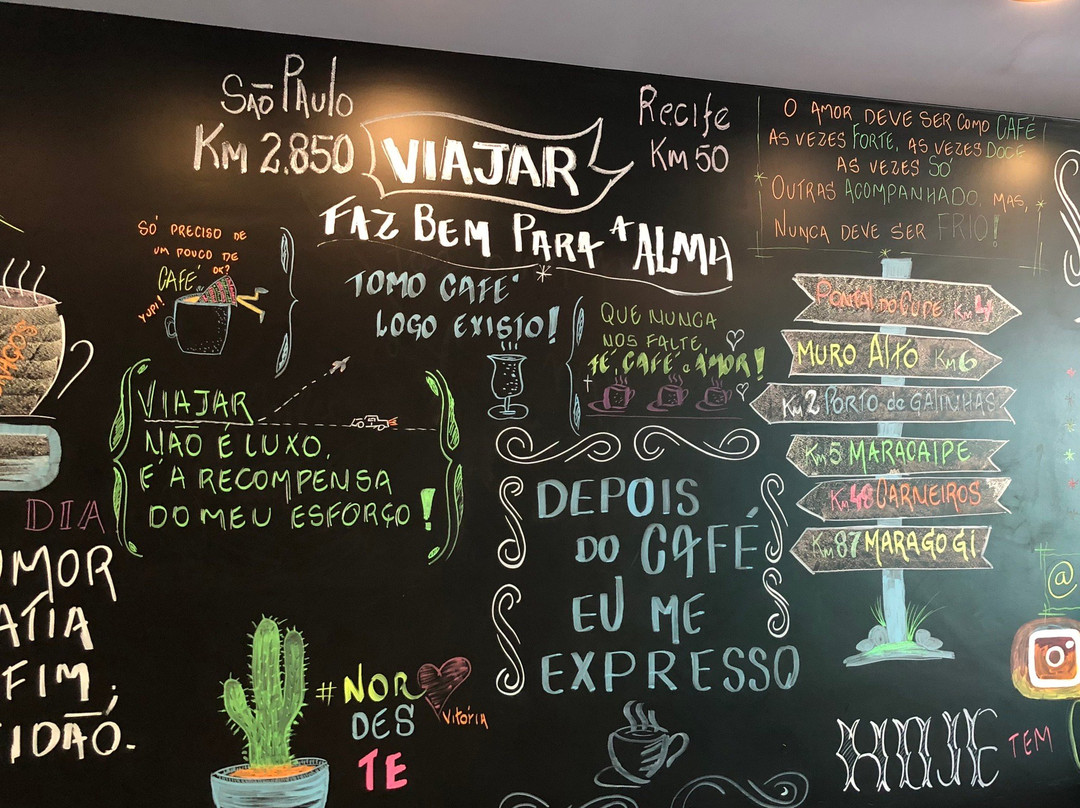 São Paulo
Km 2.850
VIAJAR
FAZ BEM PARA A ALMA
Recife
Km 50
O AMOR DEVE SER COMO CAFÉ
AS VEZES FORTE, AS VEZES DOCE
AS VEZES SÓ
OUTRAS ACOMPANHADO, MAS,
NUNCA DEVE SER FRIO!
SÓ PRECISO DE
UM POUCO DE
CAFÉ OK?
YUPI!
TOMO CAFÉ
LOGO EXISTO!
QUE NUNCA
NOS FALTE,
FÉ, CAFÉ e AMOR!
VIAJAR
NÃO É LUXO.
É A RECOMPENSA
DO MEU ESFORÇO!
PONTAL DO CUPE Km 4
MURO ALTO Km 6
Km 2 PORTO de GALINHAS
Km 5 MARACAIPE
Km 48 CARNEIROS
Km 87 MARAGOGI
DEPOIS
DO CAFÉ
EU ME
EXPRESSO
DIA
UMOR
ATIA
FIM;
IDÃO.
#NOR
DES
TE
Vitória
HOJE TEM
@